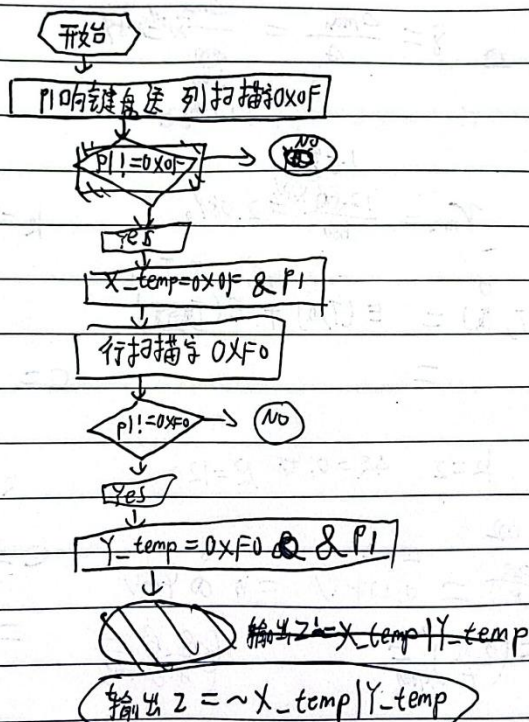 开始
P1向键盘送 列扫描字0X0F
P1!=0X0F
NO
Yes
X_temp=0X0F & P1
行扫描字 0XF0
P1!=0XF0
NO
Yes
Y_temp=0XF0 & P1
输出Z=X_temp|Y_temp
输出 Z = ~X_temp|Y_temp